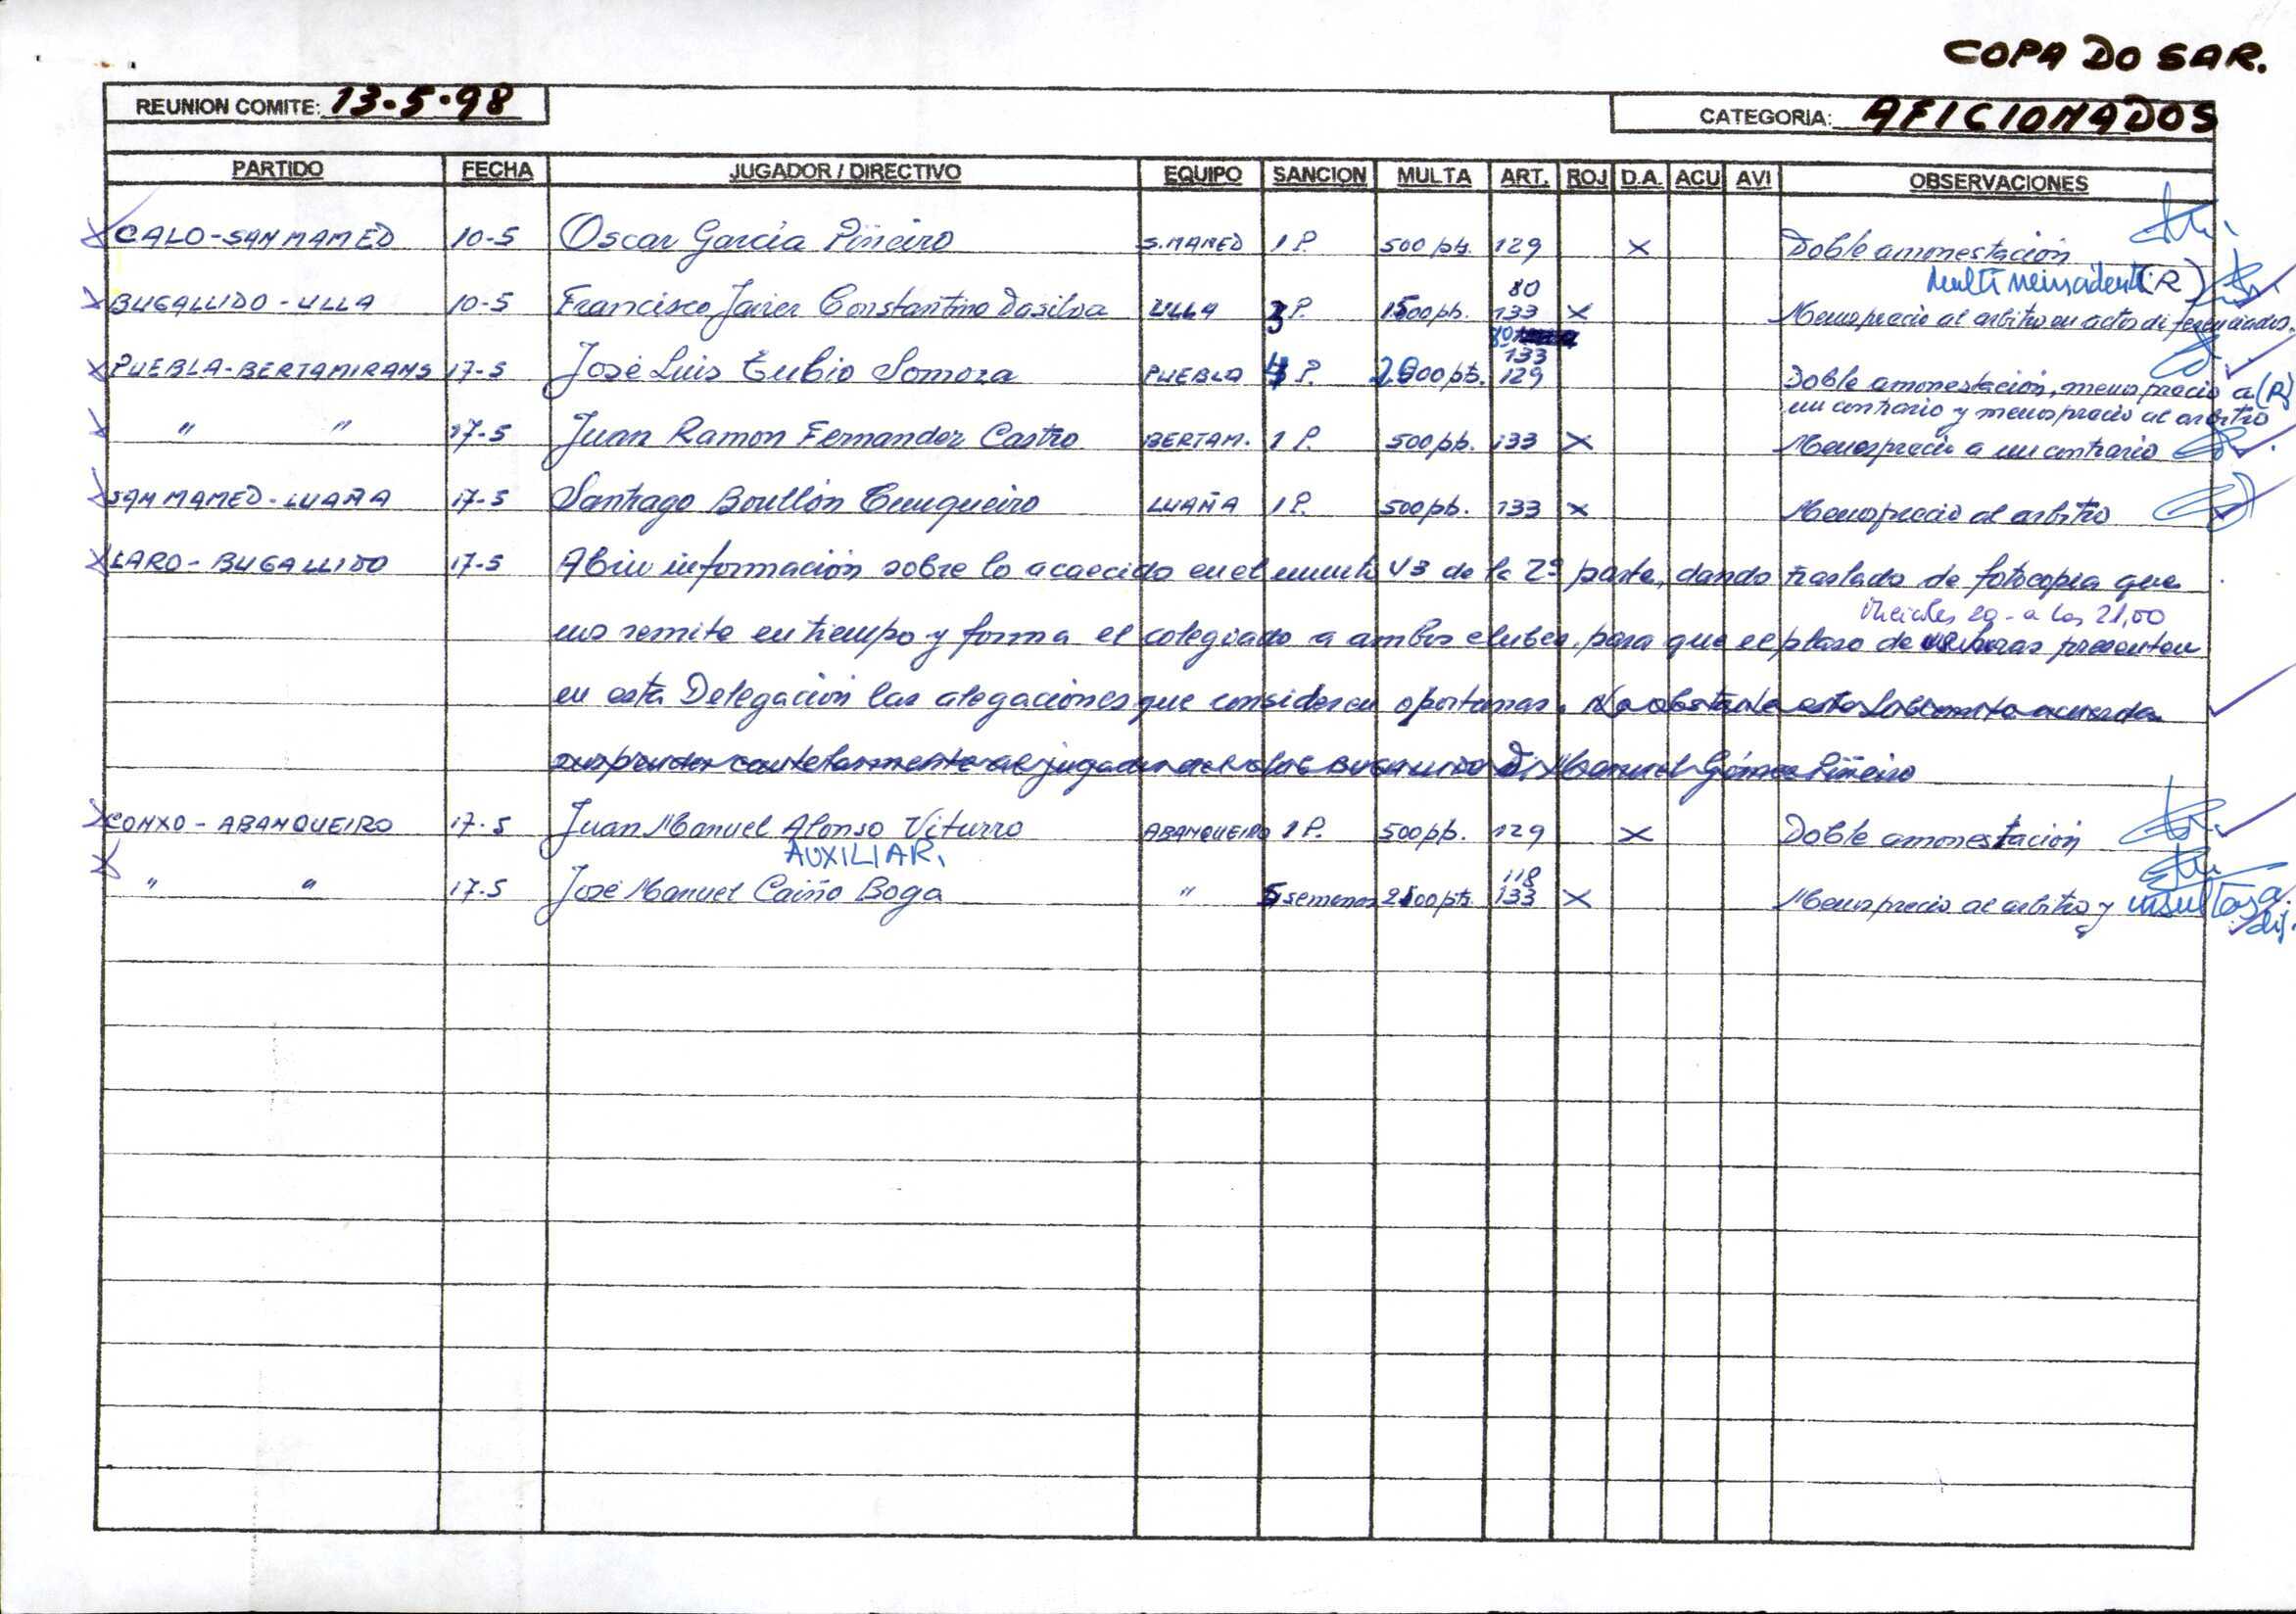 COPA DO SAR.
REUNION COMITE: 13-5-98
CATEGORIA: AFICIONADOS
PARTIDO FECHA JUGADOR / DIRECTIVO EQUIPO SANCION MULTA ART. ROJ D.A. ACU AVI OBSERVACIONES
X CALO-SAN MAMED 10-5 Oscar García Piñeiro S.MAMED 1 P. 500 pts. 129 X Doble amonestación
80 (R)
X BUGALLIDO-ULLA 10-5 Francisco Javier Constantino Dasilva ULLA 3 P. 1500 pts. 133 X Menosprecio al arbitro en actos diferenciados.
80
133
X PUEBLA-BERTAMIRANS 17-5 José Luis Tubio Somoza PUEBLA 4 P. 2000 pts. 129 Doble amonestación, menosprecio a (R)
un contrario y menosprecio al arbitro
X " " 17-5 Juan Ramon Fernandez Castro BERTAM. 1 P. 500 pts. 133 X Menosprecio a un contrario
X SAN MAMED-LUAÑA 17-5 Santiago Boullón LUAÑA 1 P. 500 pts. 133 X Menosprecio al arbitro
X LARO-BUGALLIDO 17-5 Abrir información sobre lo acaecido en el minuto 43 de la 2ª parte, dando traslado de fotocopia que
29 - a las 21,00
nos remite en tiempo y forma el colegiado a ambos clubes, para que el plazo de horas presenten
en esta Delegación las alegaciones que consideren oportunas. No obstante este Subcomite acuerda
suspender cautelarmente al jugador del club BUGALLIDO D. Manuel Gómez Piñeiro
X CONXO-ABANQUEIRO 17-5 Juan Manuel Alonso Viturro ABANQUEIRO 1 P. 500 pts. 129 X Doble amonestación
AUXILIAR. 118
X " " 17-5 José Manuel Caiño Boga " 5 semanas 2500 pts 133 X Menosprecio al arbitro y insultos a